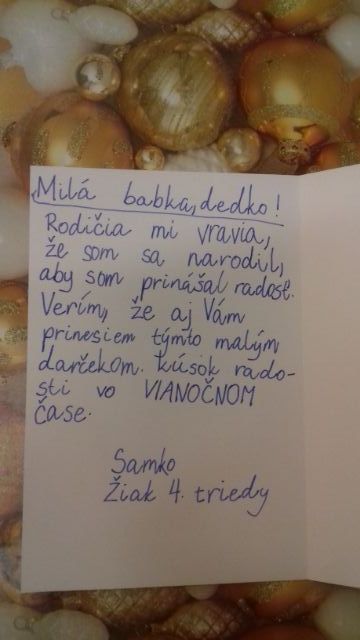 Milá babka, dedko!
Rodičia mi vravia,
že som sa narodil,
aby som prinášal radosť.
Verím, že aj Vám
prinesiem týmto malým
darčekom kúsok rado-
sti vo VIANOČNOM
čase.
Samko
Žiak 4. triedy